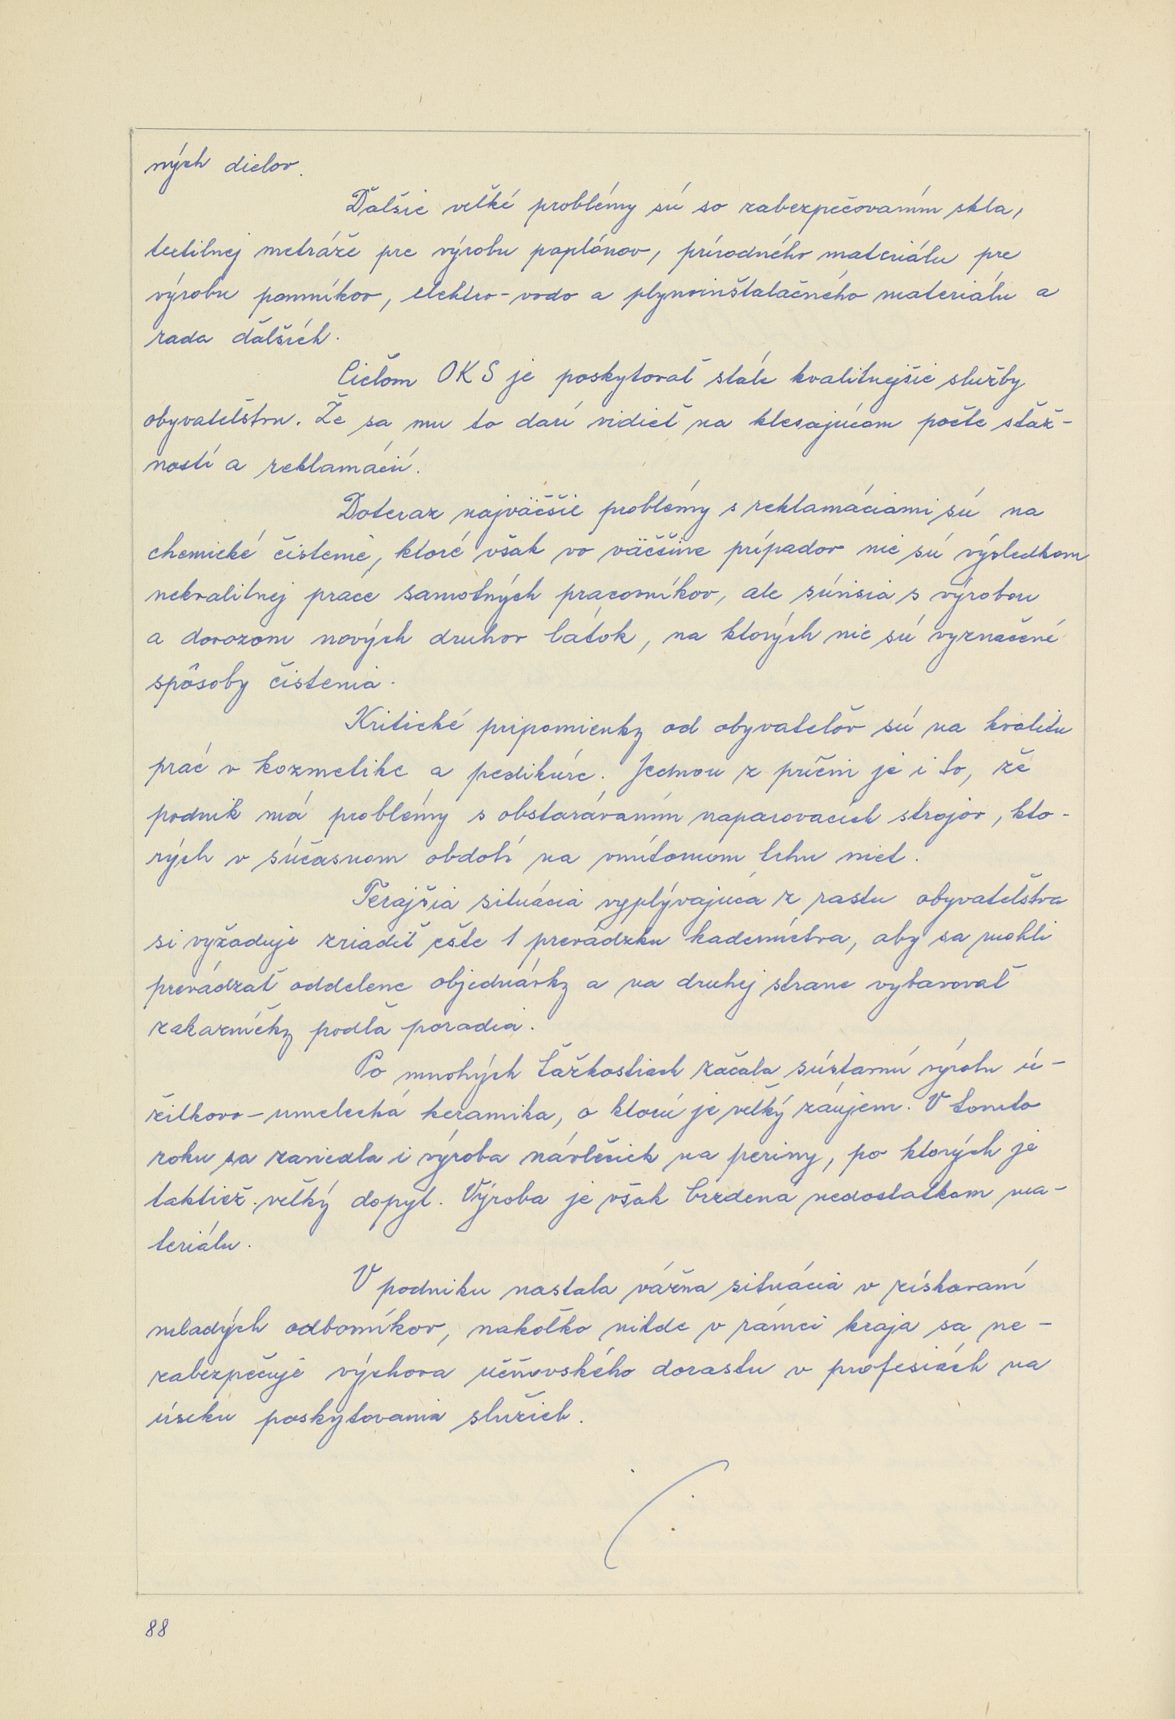 ných dielov.
Ďalšie veľké problémy sú so zabezpečovaním skla,
textilnej metráže pre výrobu paplónov, prírodného materiálu pre
výrobu pomníkov, elektro-vodo a plynoinštalačného materiálu a
rada ďalších.
Cieľom OKS je poskytovať stále kvalitnejšie služby
obyvateľstvu. Že sa mu to darí vidieť na klesajúcom počte sťaž-
ností a reklamácií.
Doteraz najväčšie problémy s reklamáciami sú na
chemické čistenie, ktoré však vo väčšine prípadov nie sú výsledkom
nekvalitnej práce samotných pracovníkov, ale súvisia s výrobou
a dovozom nových druhov látok, na ktorých nie sú vyznačené
spôsoby čistenia.
Kritické pripomienky od obyvateľov sú na kvalitu
prác v kozmetike a pedikúre. Jednou z príčin je i to, že
podnik má problémy s obstarávaním naparovacích strojov, kto-
rých v súčasnom období na vnútornom trhu niet.
Terajšia situácia vyplývajúca z rastu obyvateľstva
si vyžaduje zriadiť ešte 1 prevádzku kaderníctva, aby sa mohli
prevádzať oddelene objednávky a na druhej strane vybavovať
zákazníčky podľa poradia.
Po mnohých ťažkostiach začala sústavnú výrobu ú-
žitkovo-umelecká keramika, o ktorú je veľký záujem. V tomto
roku sa zaviedla i výroba návlečiek na periny, po ktorých je
taktiež veľký dopyt. Výroba je však brzdená nedostatkom ma-
teriálu.
V podniku nastala vážna situácia v získavaní
mladých odborníkov, nakoľko nikde v rámci kraja sa ne-
zabezpečuje výchova učňovského dorastu v profesiách na
úseku poskytovania služieb.
88